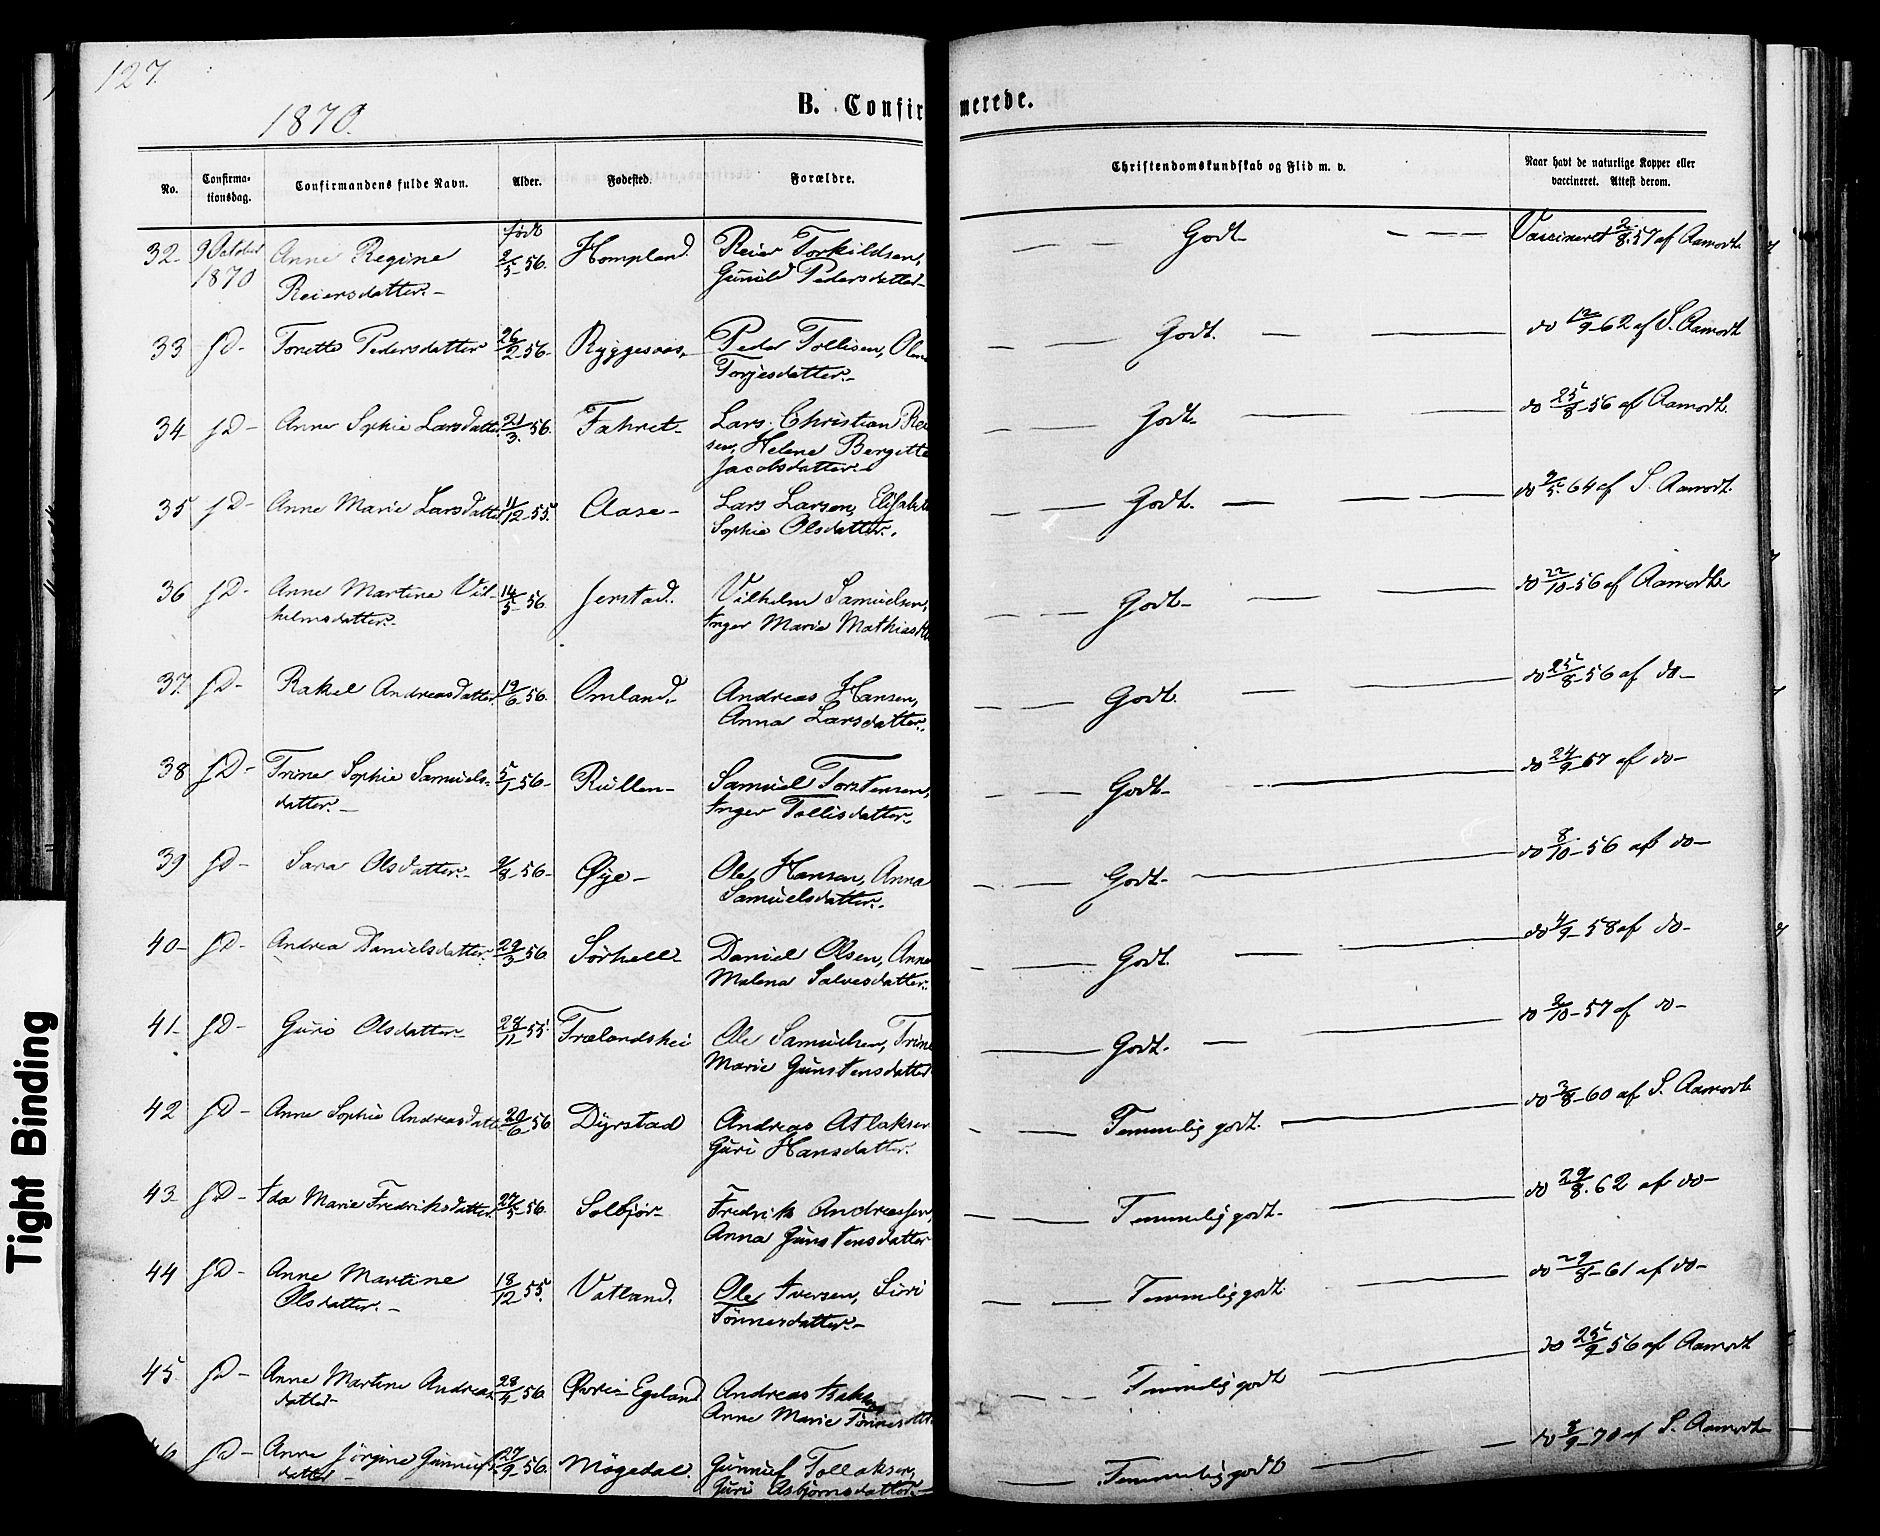 127.
1870.
B. Confirmerede.
No.
Confirma-
tionsdag.
Confirmandens fulde Navn.
Alder.
Fødested.
Forældre.
Christendomskundskab og Flid m. v.
Naar havt de naturlige Kopper eller
vaccineret. Attest derom.
født
32- 9 October Anne Regine 2/5-56. Hompland. Reier Torkildsen, — — Godt — — — Vaccineret 2/8-57 af Aamodt
1870 Reiersdatter.- Gunild Pedersdatter-
33 sD- Tonette Pedersdatter 26/2-56- Ryggesaas,- Peder Tollisen, — — Godt. — — do 12/9-62 af S. Aamodt
Torjesdatter.-
34 sD- Anne Sophie Larsdatter 21/3.56. Fahret- Lars Christian — — Godt- — — do 25/8-56 af Aamodt.
sen, Helene Bergitte
Jacobsdatter.-
35 sD- Anne Marie Larsdatter 11/12-55. Aase- Lars Larsen, — — Godt. — — — do 64 af S. Aamodt.
Sophie Olsdatter.
36 sD- Anne Martine Vil- 14/5-56. Jerstad. Vilhelm Samuelsen, — — Godt- — — do 22/10-56 af Aamodt
helmsdatter.- Inger Marie Mathiasdtt
37. sD- Rakel Andreasdatter 19/6-56. Omland.- Andreas Hansen, — — Godt. — — do 25/8-56 af do-
Anna Larsdatter.
38 sD- Trine Sophie Samuels- 5/1-56- Rullen- Samuel Torstensen, — — Godt- — do 24/9-57 af do-
datter.- Inger Tollisdatter.
39 sD- Sara Olsdatter.- 9/8-56- Øye- Ole Hansen, Anna — — Godt- — do 8/10-56 af do-
Samuelsdatter.-
40- sD- Andrea Danielsdatter. 29/3-56 Sørhell- Daniel Olsen, Anne — — Godt. — — do 4/9-58 af do-
Malena Salvesdatter.
41- sD- Guri Olsdatter- 28/11-55. Trælandshei Ole Samuelsen, Trine — Godt. — — do 2/10-57 af do-
Marie Gunstensdatter
42 sD- Anne Sophie Andreasdatt. 20/6-56 Dyrstad Andreas Atlaksen — — Temmelig godt. — do 3/8-60 af S. Aamodt
Guri Hansdatter.
43- sD- Ida Marie Fredriksdatter. 27/5-56. Solbjør- Fredrik Andreassen, — — Temmelig godt. — do 29/8.62 af do-
Anna Gunstensdatter
44 sD- Anne Martine 18/12 55. Vatland. Ole Iversen, Siri — — Temmelig godt. — do 29/8-61 af do-
Olsdatter.- Tønnesdatter.-
45. sD- Anne Martine Andreas- 28/4-56. Øvre-Egeland Andreas Isaksen — — Temmelig godt — do 25/9 56 af Aamodt
datter- Anne Marie Tønnesdtt.
sD- Anne Jørgine Gunnufs- 27/9-56. Møgedal. Gunnuf Tollaksen, — — Temmelig godt — — do 8/9-70 af S. Aamodt-
datter- Guri Asbjørnsdatter.-
Tight Binding